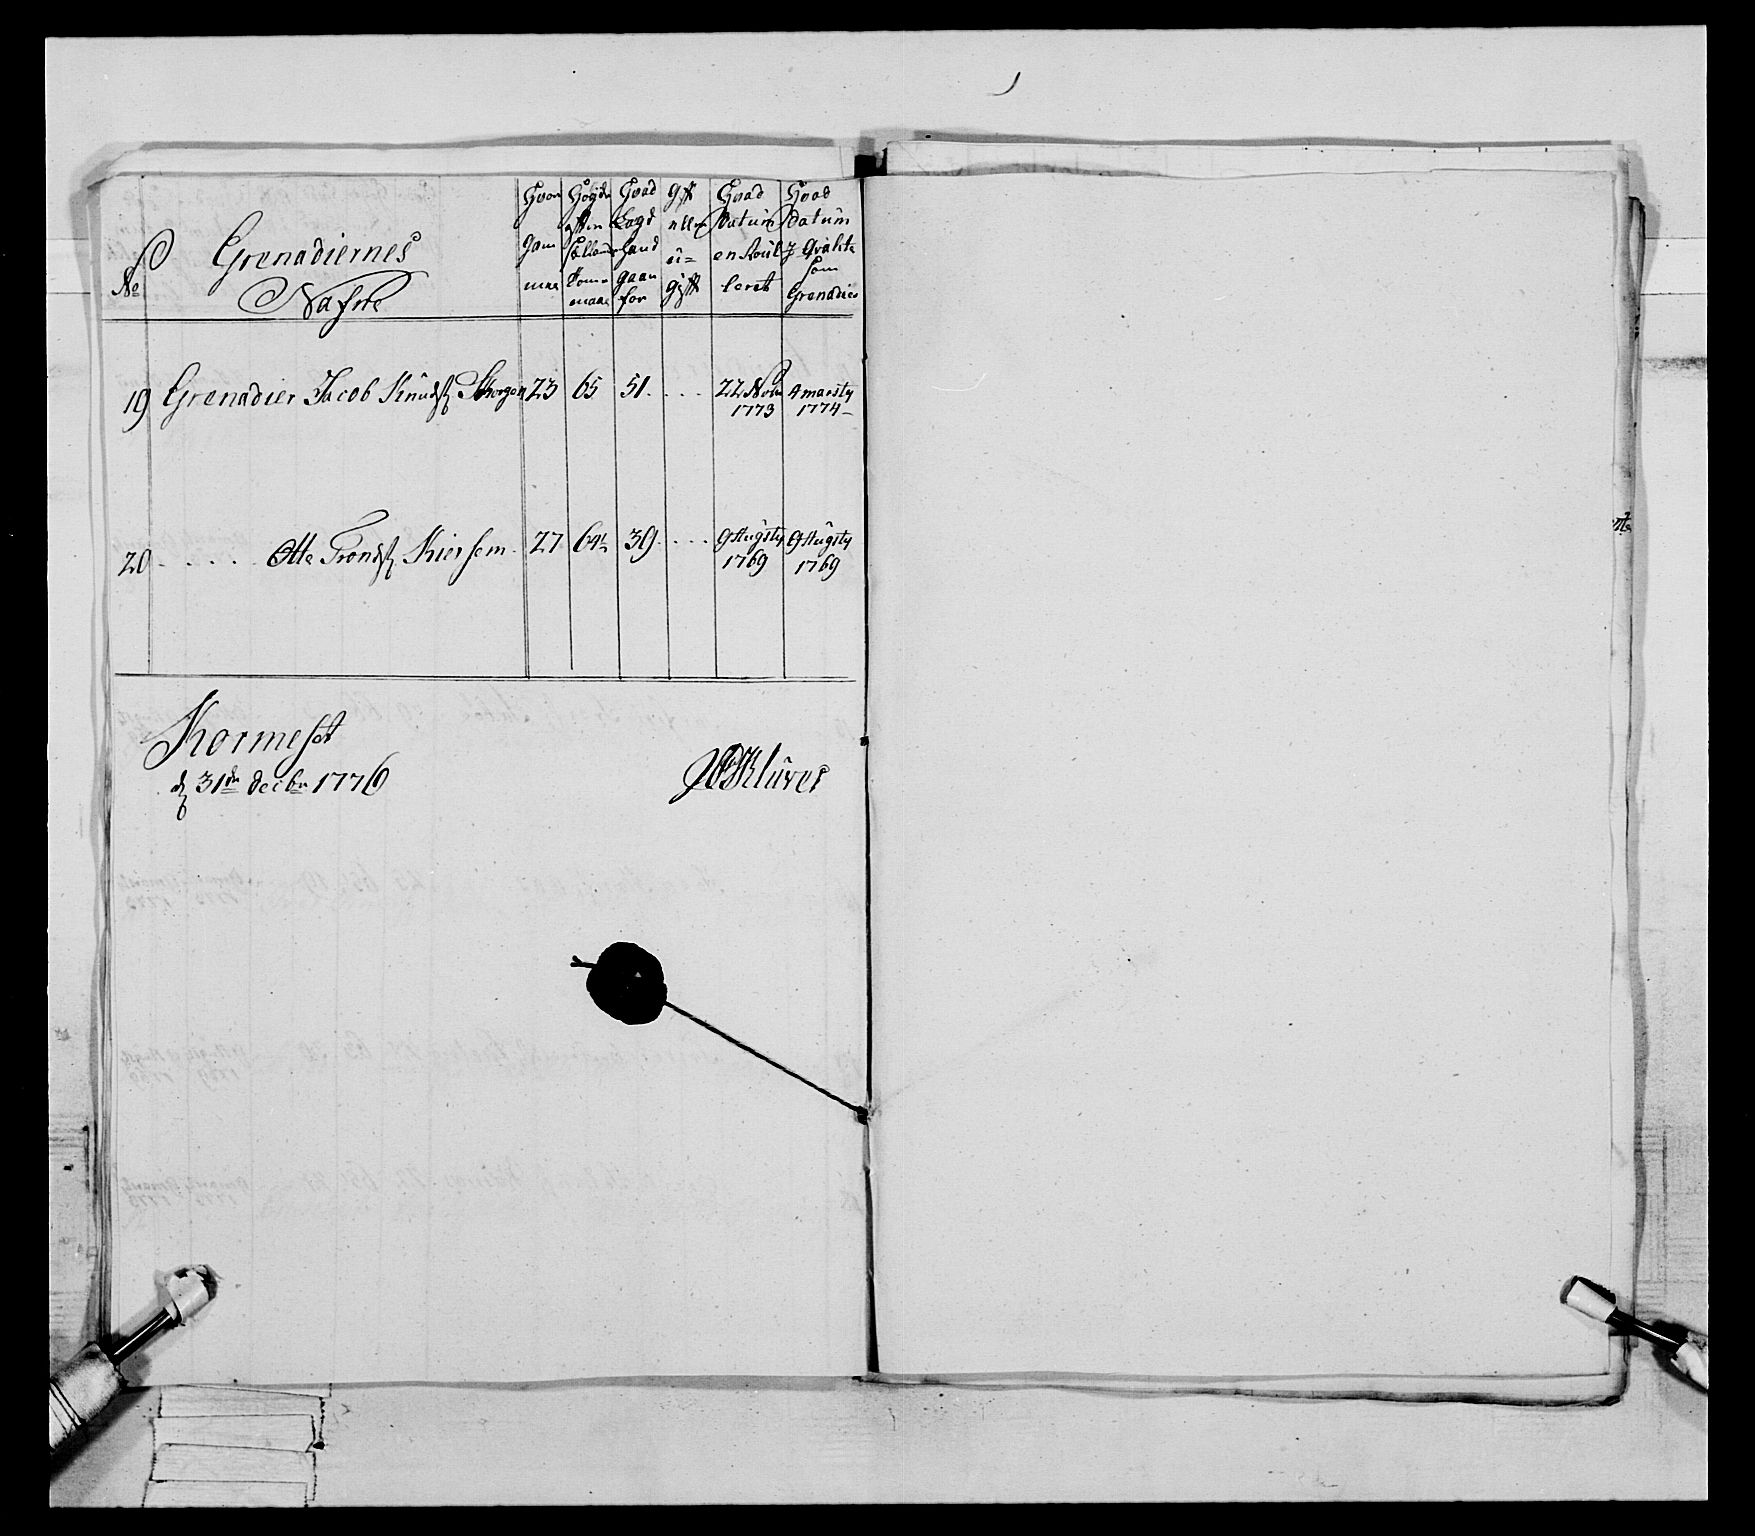 No
Grenadiernes
Nafne
Hvor
gam
mel
Høyde
efter
Hvad
Lægd
hand
gaar
for
Gift
eller
u=
gift
Hvad
Datum
enRoul
leret
Hvad
Datum
som
Grenadier
19 Grenadier Jacob Knuds: 23 65 51. . . . 22 Novbr 1773 4 martij 1774
20 . . . . . Otte Tronds: 27 64½ 39. . . . 9 Augsty 1769 9 Augsty 1769
d: 31de Decbr 1776
Klüver